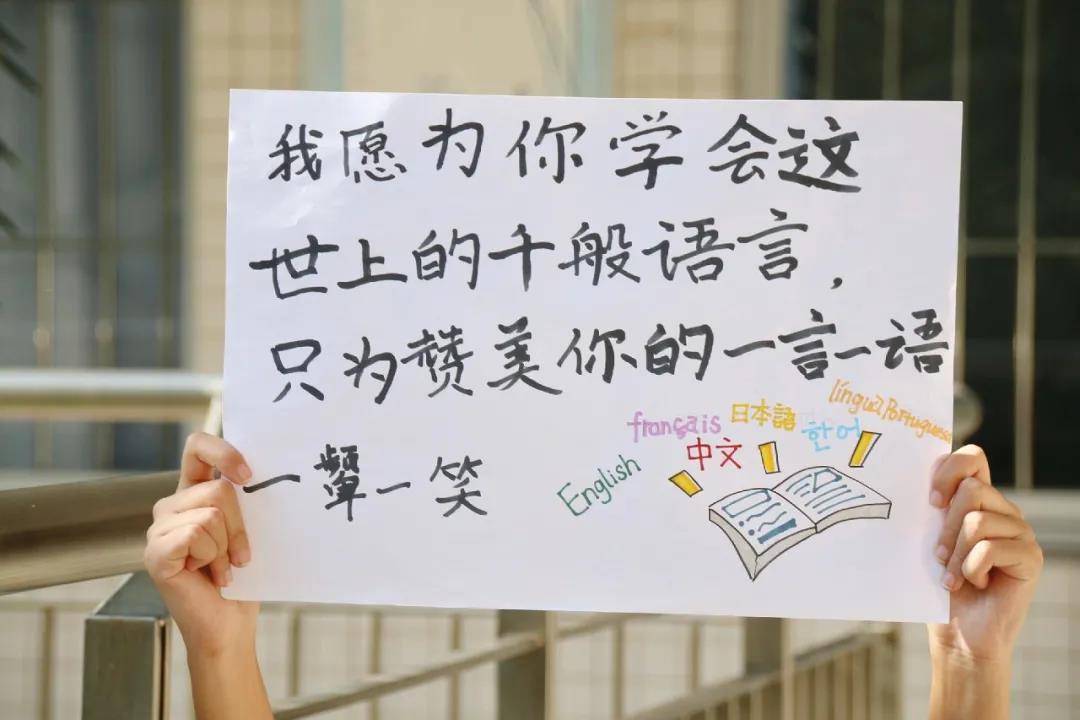 我愿为你学会这
世上的千般语言，
只为赞美你的一言一语
一颦一笑
English
français
中文
日本語
한어
língua Portuguesa